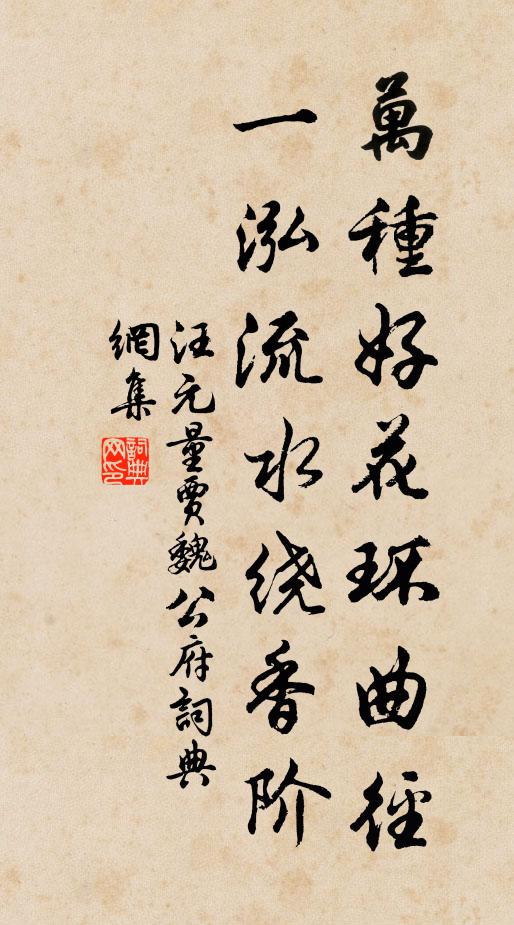 萬種好花环曲徑
一泓流水绕香阶
汪元量賈魏公府詞典
網集
詞典
网印